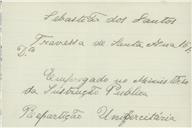 Sebastião dos Santos
Travessa de Santa Ana
Empregado no Ministério
da Instrução Publica
Repartição Universitária